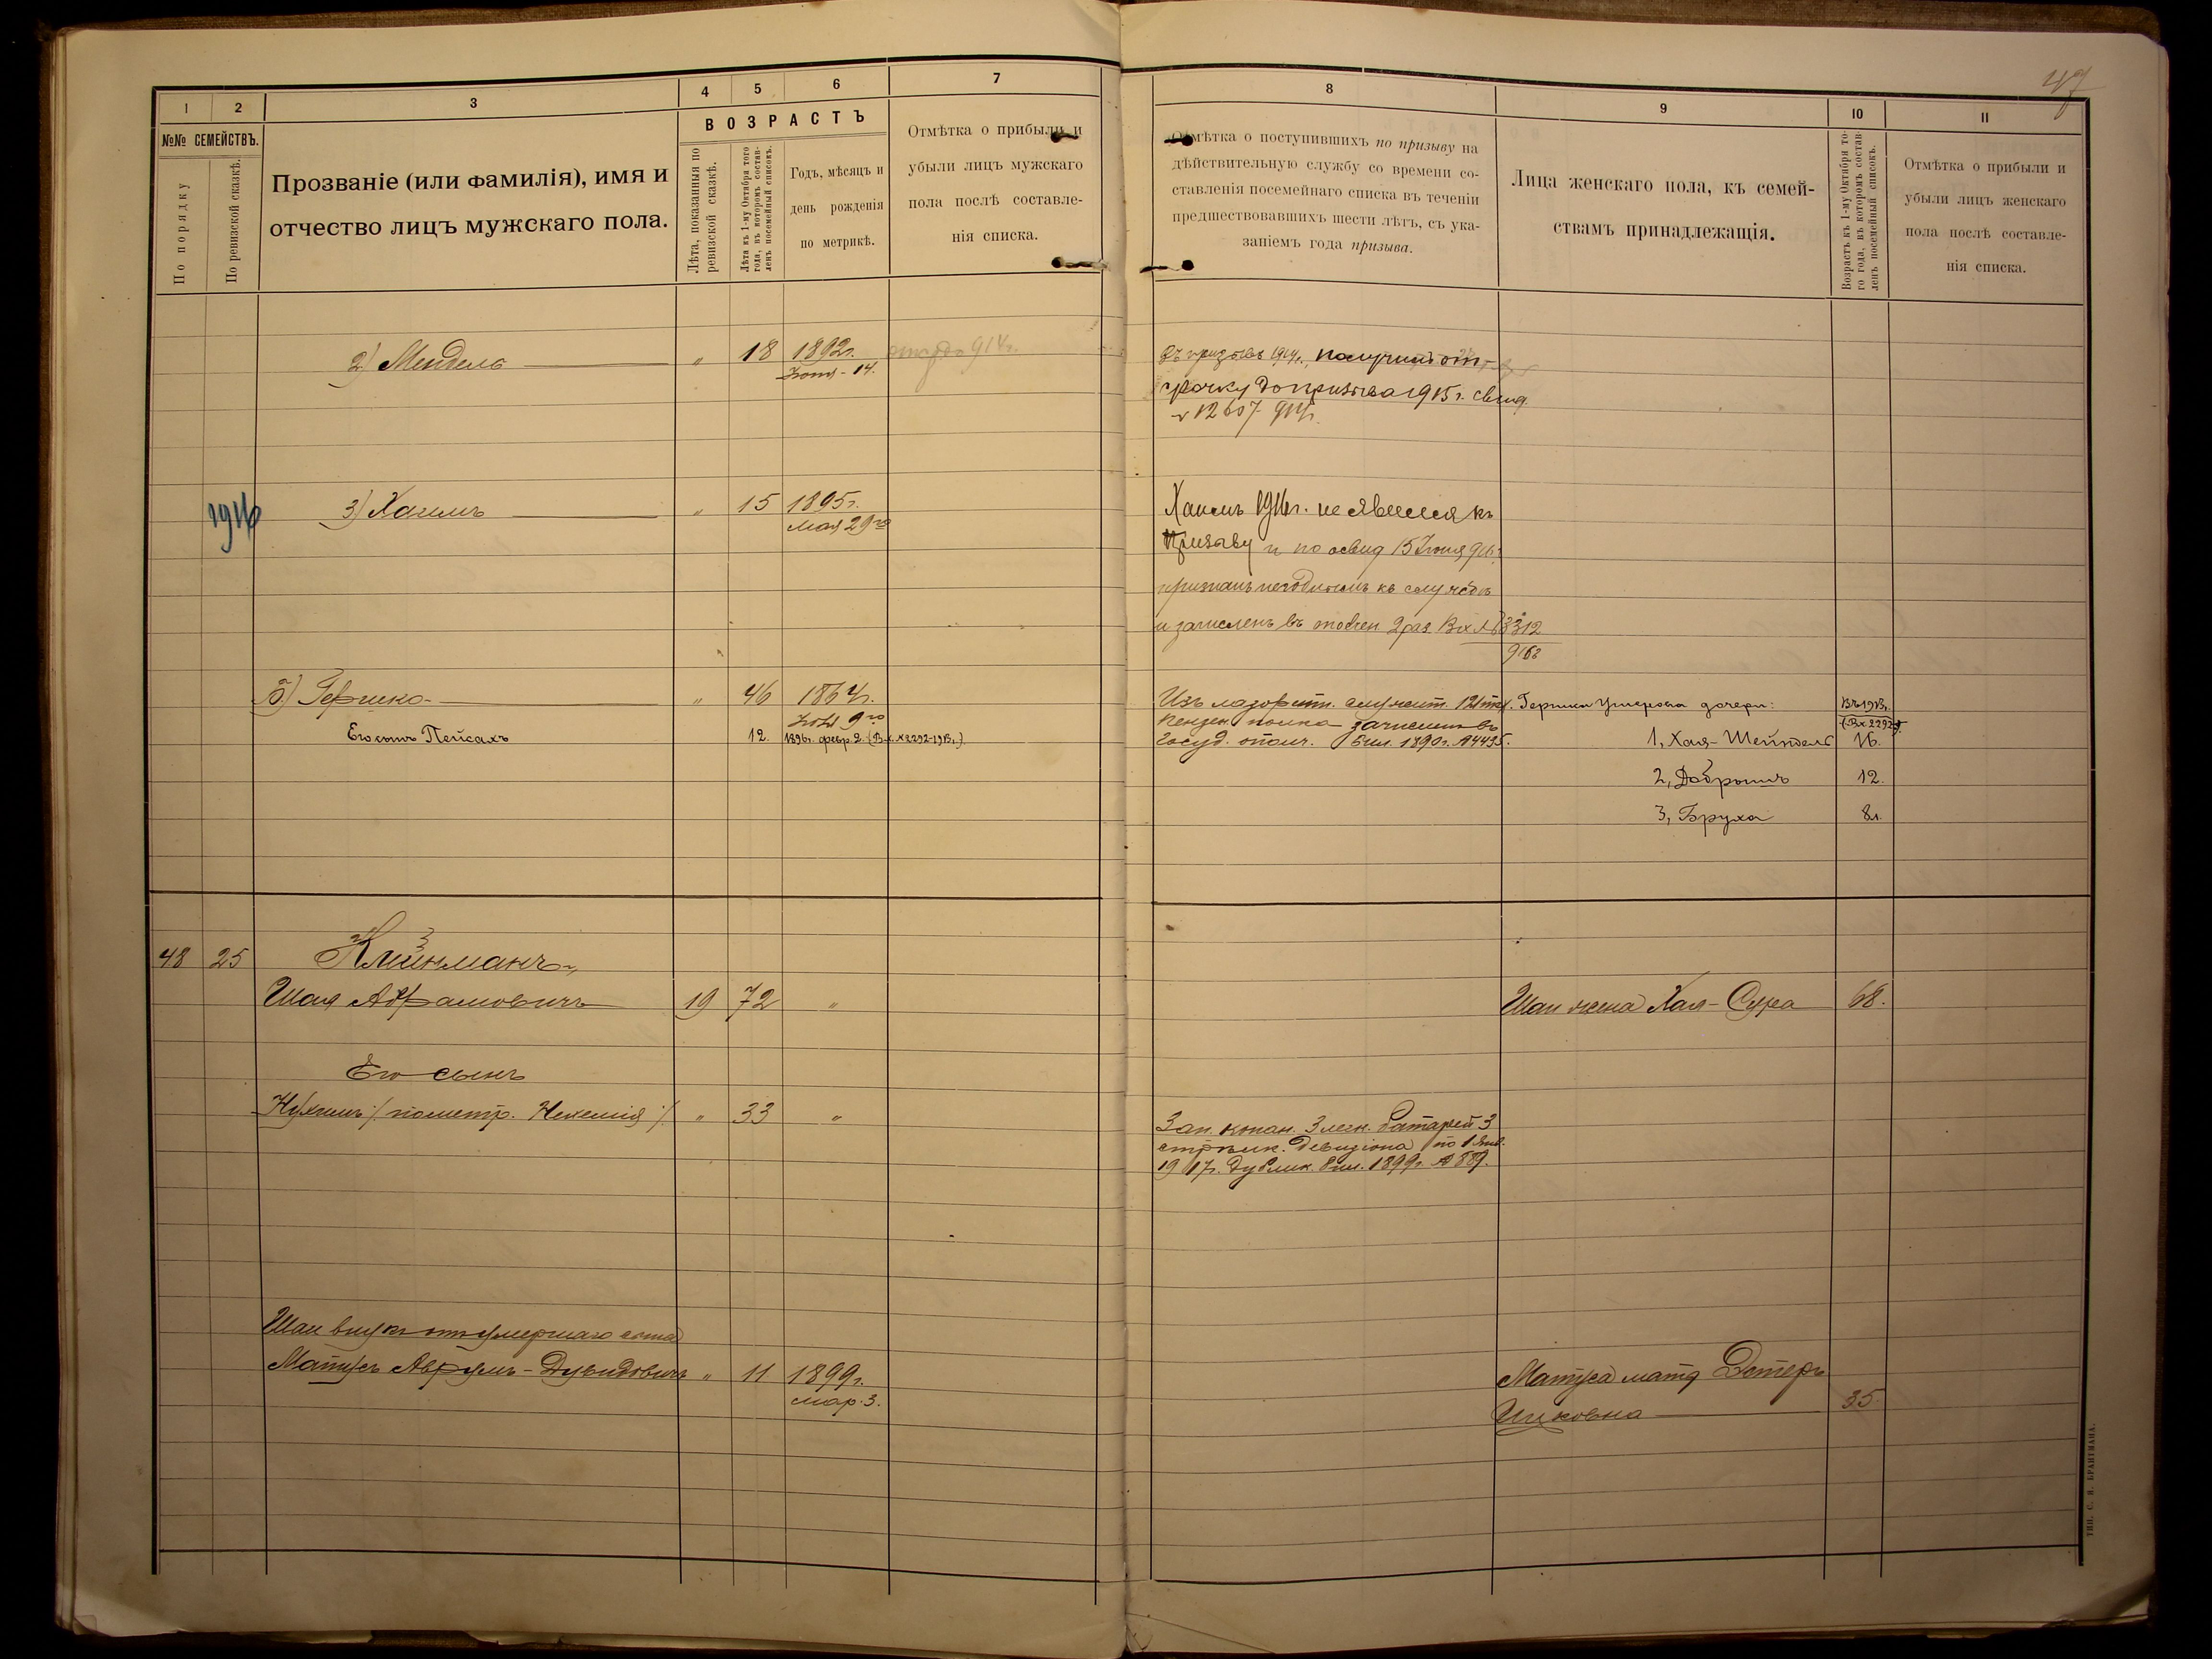 47
1
2
3
4
5
6
7
№№ СЕМЕЙСТВЪ.
По порядку
По ревизской сказкѣ.
Прозваніе (или фамилія), имя и
отчество лицъ мужскаго пола.
ВОЗРАСТЪ
Лѣта, показанныя по
ревизской сказкѣ.
Лѣта къ 1-му Октября того
года, въ которомъ состав-
ленъ посемейный списокъ.
Годъ, мѣсяцъ и
день рожденія
по метрикѣ.
Отмѣтка о прибыли и
убыли лицъ мужскаго
пола послѣ составле-
нія списка.
8
9
10
11
Отмѣтка о поступившихъ по призыву на
дѣйствительную службу со времени со-
ставленія посемейнаго списка въ теченіи
предшествовавшихъ шести лѣтъ, съ ука-
заніемъ года призыва.
Лица женскаго пола, къ семей-
ствамъ принадлежащія.
Возрастъ къ 1-му Октября то-
го года, въ которомъ состав-
ленъ посемейный списокъ.
Отмѣтка о прибыли и
убыли лицъ женскаго
пола послѣ составле-
нія списка.
2) Мендель " 18 1892г. 914г.
14.
Въ призывъ 1914г., получилъ от-
срочку до призыва 1915г. свид.
№ 12607 914г.
1916
3) Хаимъ " 15 1895г.
мая 29го
Хаимъ 1916г. не явился къ
призыву и по освид 15 Іюня 916г
признанъ негоднымъ къ службѣ
и зачисленъ въ ополчен 2 раз. Вх № 3312
916г
5) Гершко " 46 1864г.
9го
Его сынъ Пейсахъ 12. 1896г. февр. 2. (Вх. № 2292-1913г.)
Изъ лазаретн. служит. 121 пех.
Пензен. полка зачисленъ въ
Госуд. ополч. бил. 1890г. № 4495.
Гершки Умерова дочери: Въ 1913г.
(Вх 2292)
1, Хая-Шейндель 16.
2, Добрышъ 12.
3, Бруха 8л.
48 25 Клейнманъ
Шая Абрамовичъ 19 72 "
Шаи жена Хая-Сура 68.
Его сынъ
Нухимъ /по метр. Нехемія/ " 33 "
Зап. канон. 3 легк. батареи 3
стрѣлк. дивизіона по 1 Янв.
1917г. Дублик. бил. 1899г. № 889.
Шаи внукъ отъ умершаго сына
Матусъ Аврумъ-Дувидовичъ " 11 1899г.
мар. 3.
Матуса мать Эстеръ
Ицковна 35.
ТИП. С. Я. БРАНТМАНА.